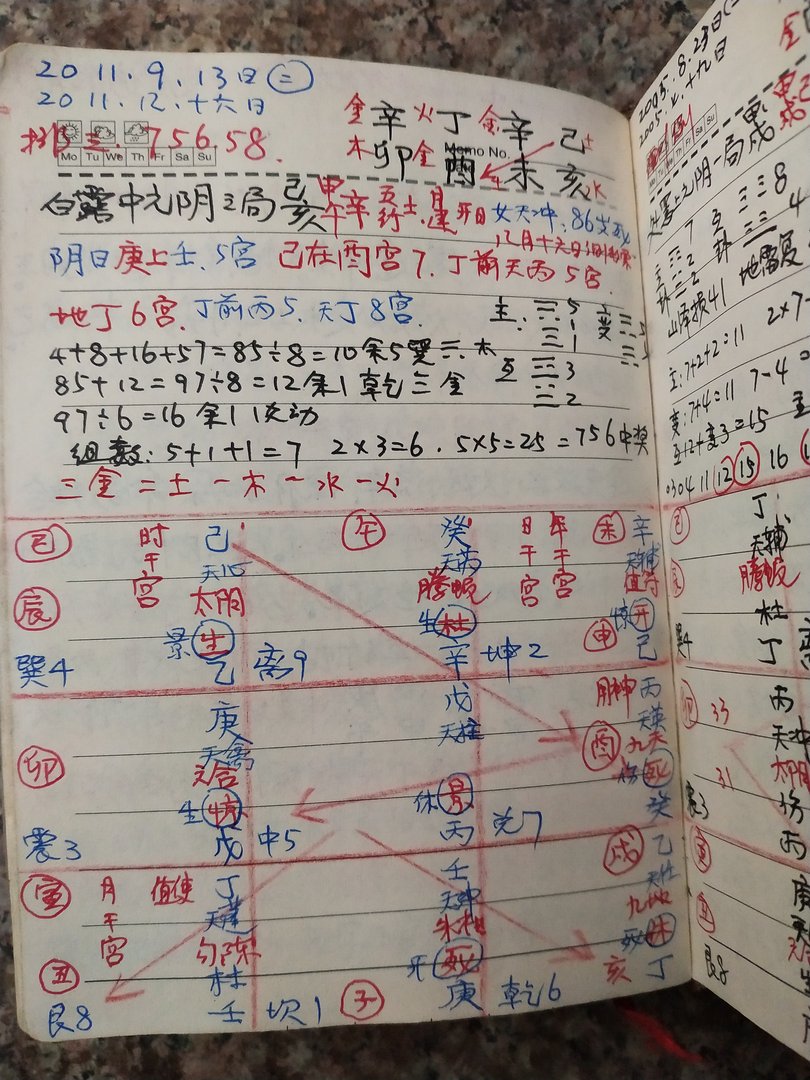 2011.9.13日(二)
2011.12.十六日
排三.756.58.
Mo Tu We Th Fr Sa Su
Memo No.
金辛 火丁 金辛 己土
木卯 金酉 未 亥水
白露中元阴之局己亥 甲午辛 五行土.月建 开日 女天冲.86岁死
12月十六日
阴日庚上壬.5宫 己在酉宫7.丁前天丙5宫.
地丁6宫.丁前丙5.天丁8宫.
主:☰5 变☰5
☰1 ☰
互☰3
☰2
4+8+16+57=85÷8=10余5巽☴木
85+12=97÷8=12余1乾☰金
97÷6=16余1 1次动
组数:5+1+1=7 2×3=6.5×5=25=756中奖
三金=土-木-水-火
巳 时干宫 己
天心
太阴
辰
景 生
巽4 乙
午 癸
天芮
腾蛇
日干宫 年干宫
生 杜
离9 辛
未 辛
天辅
值符
惊 开
申
坤2 己
庚
天禽
六合
卯
生 伤
震3 戊
戊
天柱
休 景
中5 丙
用神 丙
天英
九天
酉
伤 死
兑7 癸
寅 月干宫 值使 丁
天蓬
勾陈
杜
丑
艮8 壬
壬
天冲
朱雀
开 死
坎1 子 庚
戌 乙
天任
九地
死 休
亥
乾6 丁
2005.8.23日(二
2005.七.十九日
处暑上元阴一局 庚戌
主☰7 互☰8
☰2 卦☰4
卦☰2
山泽损41 地雷复
主:7+2+2=11 2×7
变:7+4=11 7-4=
互12+变3=15
03 04 11 12 15 16
巳 丁
天辅
腾蛇
辰
杜
巽4 丁
卯 33 丙
天冲
31 太阴
伤
震3 丙
寅 庚
丑
艮8